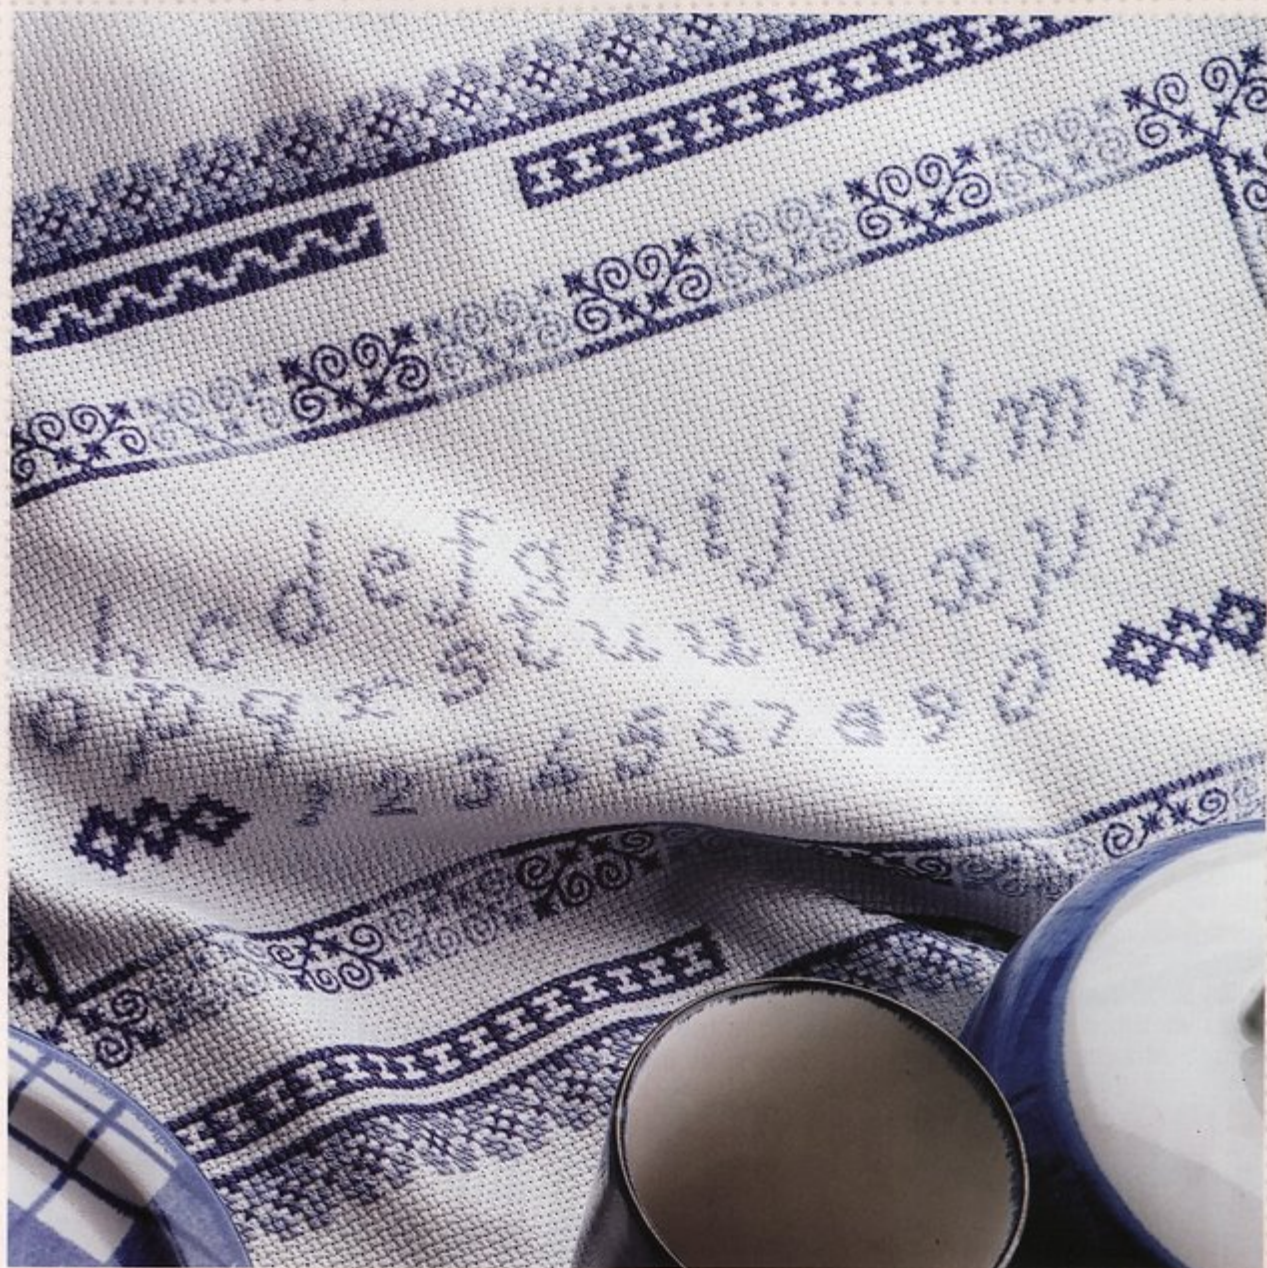 b c d e f g h i j k l m n
o p q r s t u v w x y z .
1 2 3 4 5 6 7 8 9 0